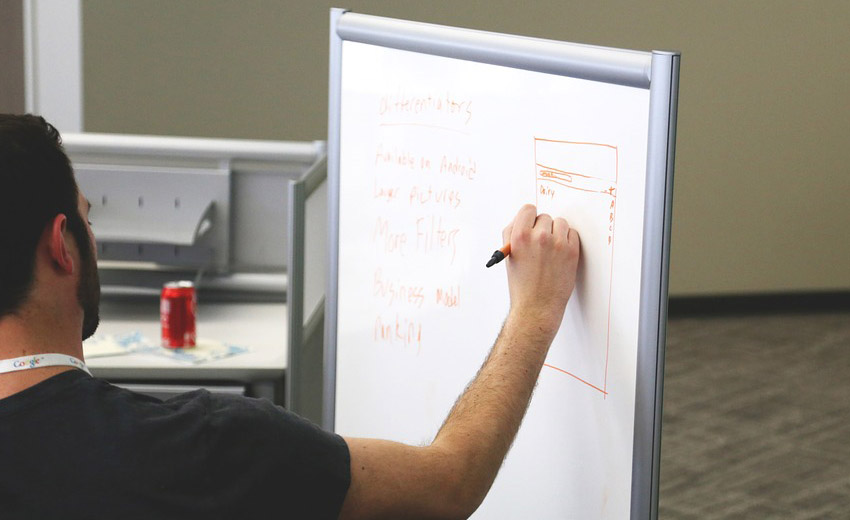 Differentiators
Available on Android
Larger pictures
More Filters
Business Model
Ranking
A
B
C
D
Google